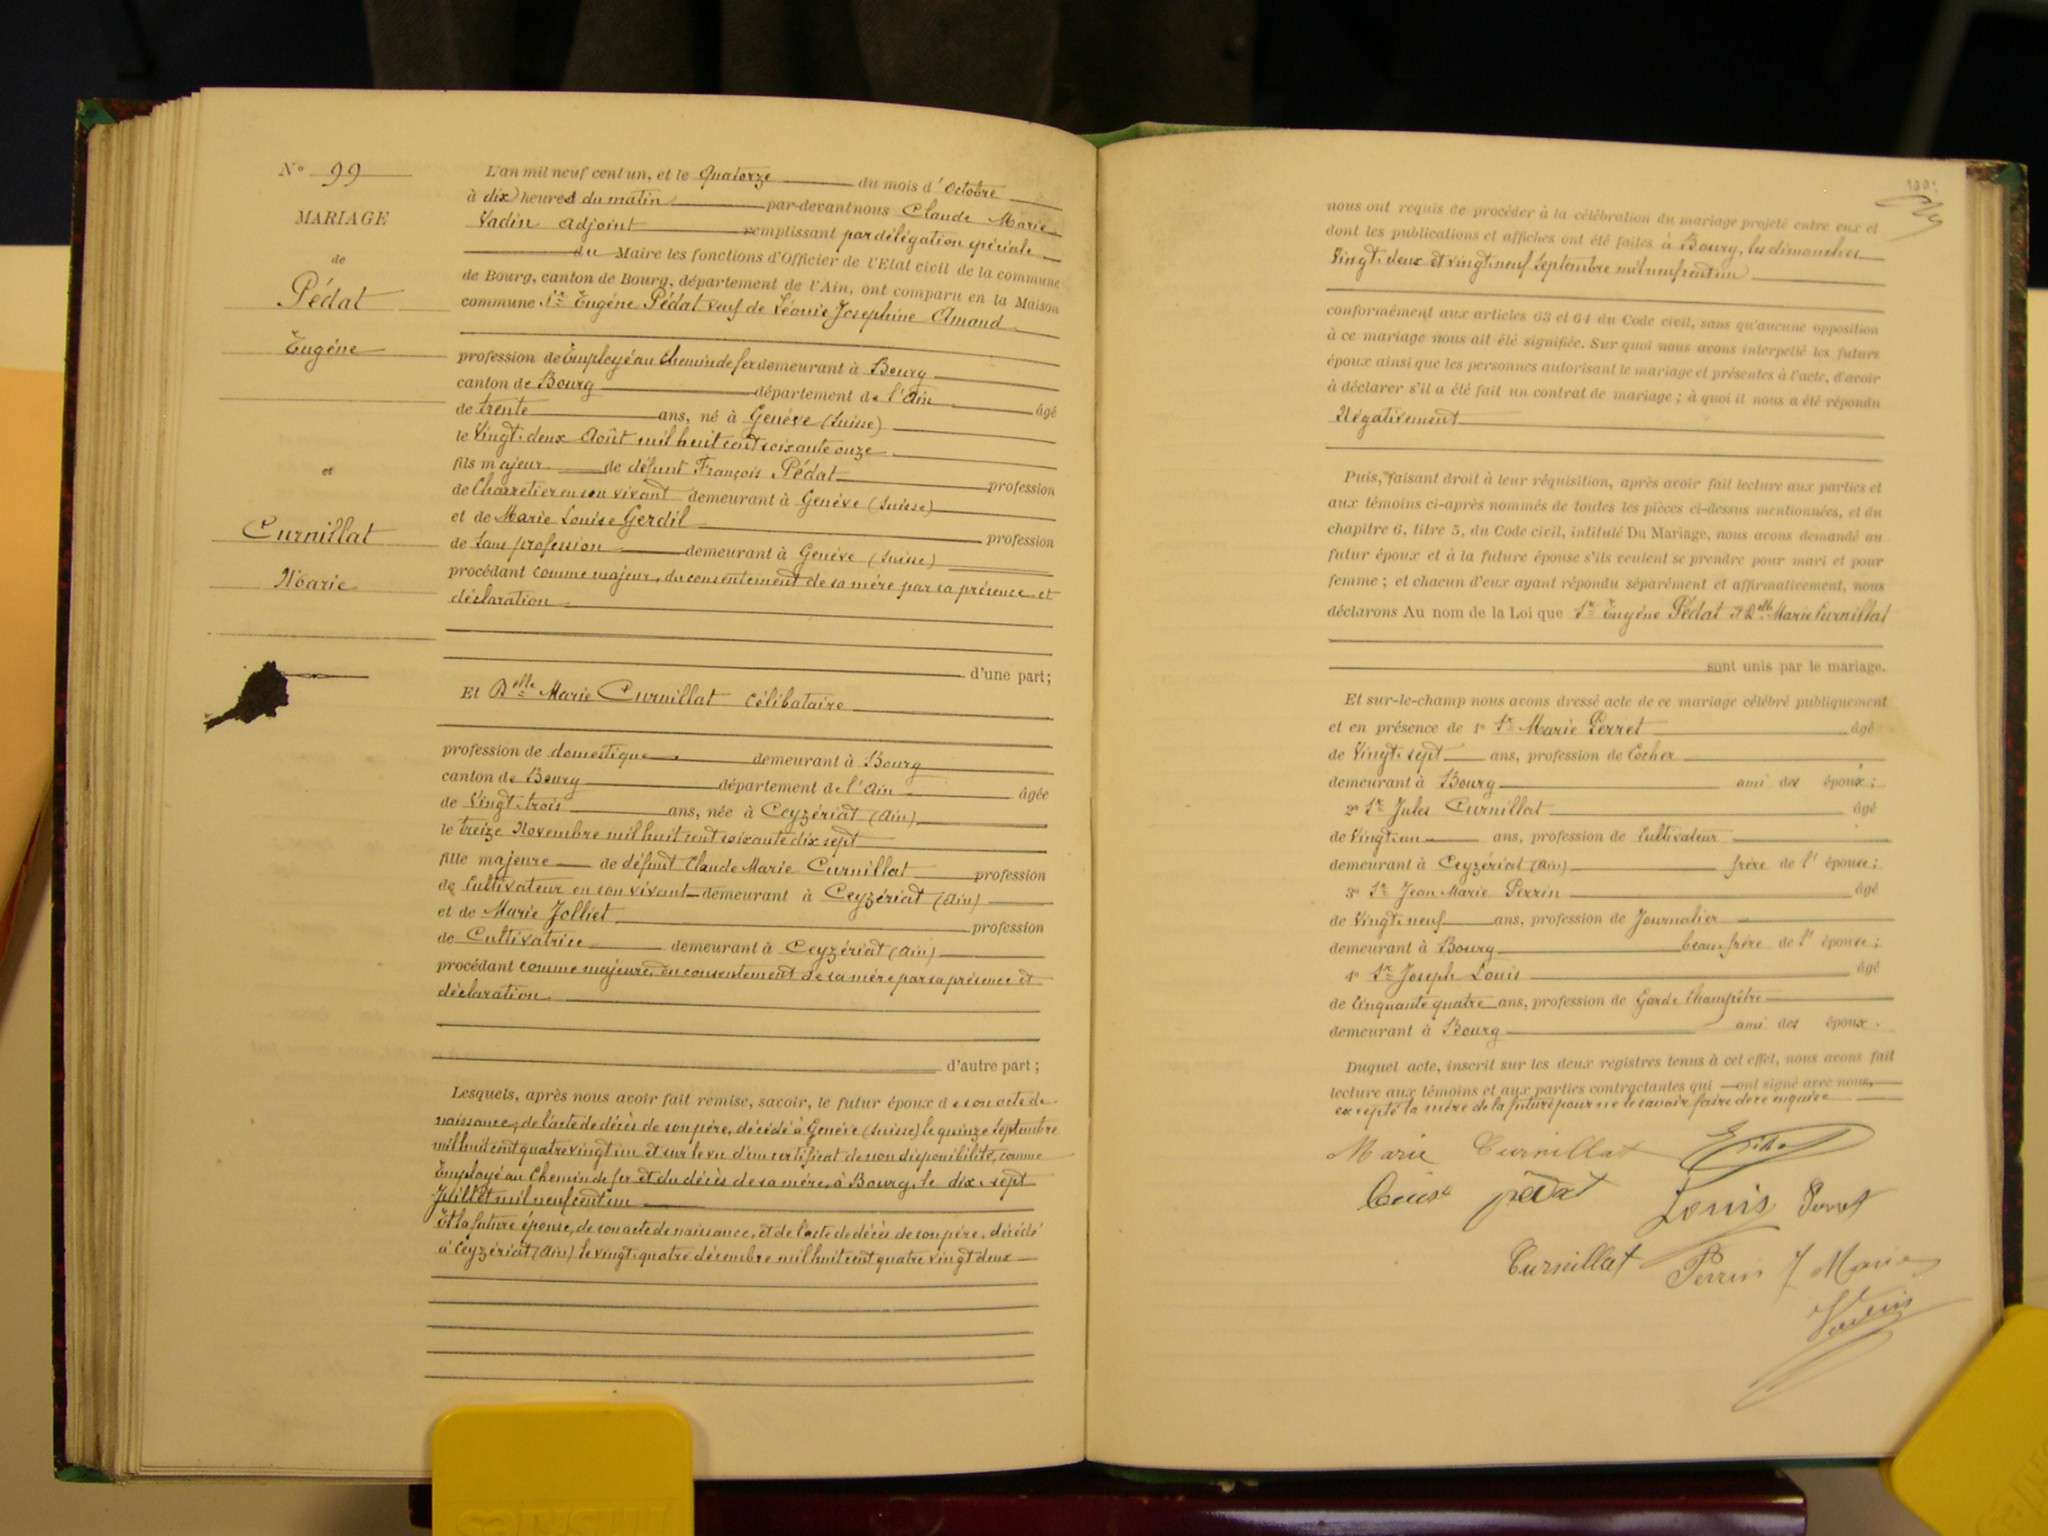 N° 99
MARIAGE
de
Pédat
Eugène
et
Curnillat
Marie
L'an mil neuf cent un, et le Quatorze du mois d'Octobre
à dix heures du matin par-devant nous Claude Marie
Vadin Adjoint remplissant par délégation spéciale
du Maire les fonctions d'Officier de l'Etat civil de la commune
de Bourg, canton de Bourg, département de l'Ain, ont comparu en la Maison
commune Sr Eugène Pédat veuf de Léonie Josephine Amand
profession de Employé au Chemin de fer demeurant à Bourg
canton de Bourg département de l'Ain âgé
de trente ans, né à Genève (Suisse)
le Vingt-deux Août mil huit cent soixante onze
fils majeur de défunt François Pédat profession
de Charretier en son vivant demeurant à Genève (Suisse)
et de Marie Louise Gerdil profession
de Sans profession demeurant à Genève (Suisse)
procédant comme majeur, du consentement de sa mère par sa présence et
déclaration
d'une part;
Et Delle Marie Curnillat célibataire
profession de domestique demeurant à Bourg
canton de Bourg département de l'Ain âgée
de Vingt-trois ans, née à Ceyzériat (Ain)
le treize Novembre mil huit cent soixante dix sept
fille majeure de défunt Claude Marie Curnillat profession
de Cultivateur en son vivant demeurant à Ceyzériat (Ain)
et de Marie Jolliet profession
de Cultivatrice demeurant à Ceyzériat (Ain)
procédant comme majeure, du consentement de sa mère par sa présence et
déclaration
d'autre part;
Lesquels, après nous avoir fait remise, savoir, le futur époux de son acte de
naissance, de l'acte de décès de son père, décédé à Genève (Suisse) le quinze Septembre
mil huit cent quatre vingt un et sur le vu d'un certificat de non disponibilité, comme
Employé au Chemin de fer et du décès de sa mère, à Bourg, le dix-sept
Juillet mil neuf cent un
Et la future épouse, de son acte de naissance, et de l'acte de décès de son père, décédé
à Ceyzériat (Ain) le vingt-quatre décembre mil huit cent quatre vingt deux
nous ont requis de procéder à la célébration du mariage projeté entre eux et
dont les publications et affiches ont été faites à Bourg, les dimanches
Vingt-deux et vingt neuf Septembre mil neuf cent un
conformément aux articles 63 et 64 du Code civil, sans qu'aucune opposition
à ce mariage nous ait été signifiée. Sur quoi nous avons interpellé les futurs
époux ainsi que les personnes autorisant le mariage et présentes à l'acte, d'avoir
à déclarer s'il a été fait un contrat de mariage; à quoi il nous a été répondu
Négativement
Puis, faisant droit à leur réquisition, après avoir fait lecture aux parties et
aux témoins ci-après nommés de toutes les pièces ci-dessus mentionnées, et du
chapitre 6, titre 5, du Code civil, intitulé Du Mariage, nous avons demandé au
futur époux et à la future épouse s'ils veulent se prendre pour mari et pour
femme; et chacun d'eux ayant répondu séparément et affirmativement, nous
déclarons Au nom de la Loi que Sr Eugène Pédat & Delle Marie Curnillat
sont unis par le mariage.
Et sur-le-champ nous avons dressé acte de ce mariage célébré publiquement
et en présence de 1° Sr Marie Perret âgé
de Vingt-sept ans, profession de Cocher
demeurant à Bourg ami des époux;
2° Sr Jules Curnillat âgé
de Vingt un ans, profession de Cultivateur
demeurant à Ceyzériat (Ain) frère de l'épouse;
3° Sr Jean Marie Perrin âgé
de Vingt-neuf ans, profession de Journalier
demeurant à Bourg beau frère de l'épouse;
4° Sr Joseph Louis âgé
de Cinquante quatre ans, profession de Garde Champêtre
demeurant à Bourg ami des époux.
Duquel acte, inscrit sur les deux registres tenus à cet effet, nous avons fait
lecture aux témoins et aux parties contractantes qui ont signé avec nous,
excepté la mère de la future pour ne le savoir faire de ce enquise
Marie Curnillat
pédat
Louis Perret
Curnillat Perrin J Marie
Vadin